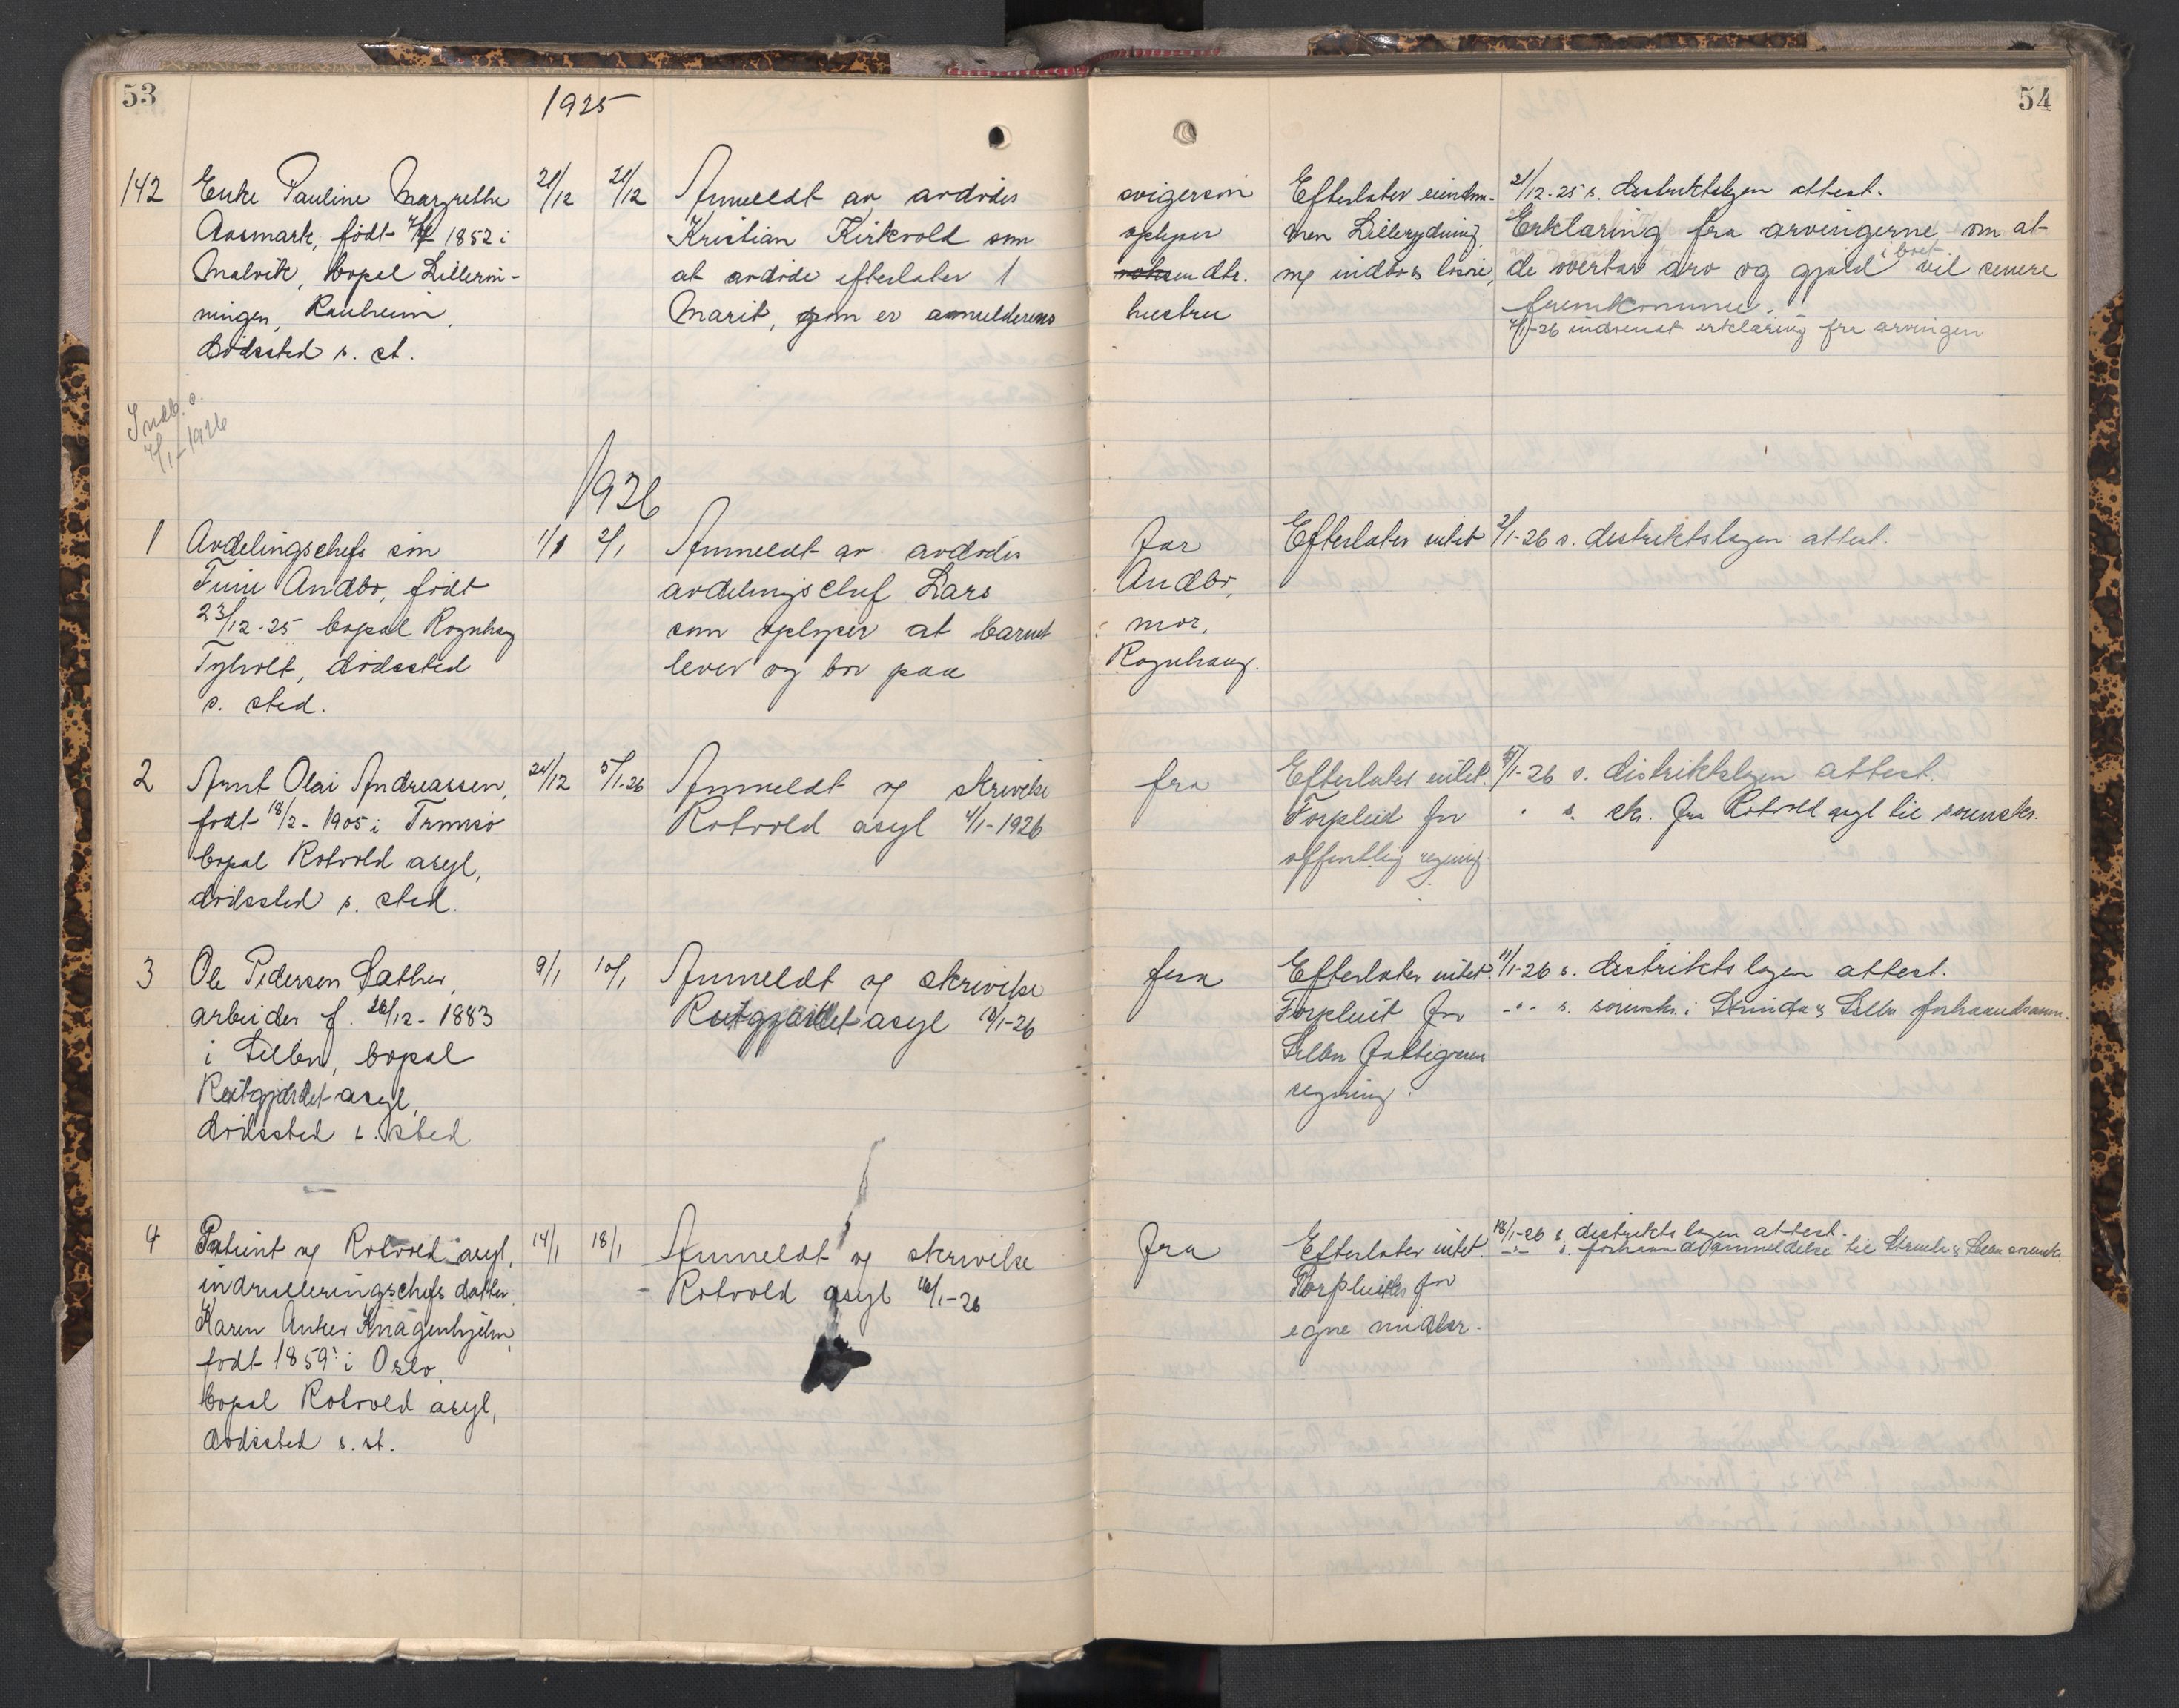 53
1925
142 Enke Pauline Margrethe 21/12 21/12 Anmeldt av avdødes
Aasmark, født 1852 i Kristian Kirkvold som
Malvik, bopæl Lillerin- at avdøde efterlater 1
ningen, Ranheim, Marit, som er anmelderens
dødssted s. st.
Indb. s.
4/1-1926
1926
1 Avdelingschefs søn 1/1 2/1 Anmeldt av avdødes
Andbo, født avdelingschef Lars
23/12-25 bopæl Rognhaug som oplyser at barnet
Tyholt, dødssted lever og bor paa
s. sted.
2 Arnt Olai Andreassen, 24/12 5/1-26 Anmeldt og skrivelse
født 18/2-1905 i Tromsø Rotvold asyl 4/1-1926
bopæl Rotvold asyl,
dødssted s. sted.
3 Ole Pedersen Sather, 9/1 10/1 Anmeldt og skrivelse
arbeider f. 26/12-1883 Reitgjærdet asyl 9/1-26
i Selbu, bopæl
Reitgjærdet asyl,
dødssted s. sted
4 Patient og Rotvold asyl, 14/1 18/1 Anmeldt og skrivelse
indrulleringschefs datter Rotvold asyl 16/1-26
Karen Anker Knagenhjelm,
født 1859 i Oslo,
bopæl Rotvold asyl,
dødssted s. st.
54
svigersøn Efterlater eiendom- 21/12-25 s. distriktslægen attest.
oplyser men Lillerydning, Erklæring fra arvingerne om at
voksen dtr. og indbo & løsøre, de overtar arv og gjæld i boet vil senere
hustru fremkomme.
4/1-26 indsendt erklæring fra arvingen
far Efterlater intet 2/1-26 s. distriktslægen attest.
Andbo,
mor,
Rognhaug.
fra Efterlater intet. 5/1-26 s. distriktslægen attest.
Forpleid for " s. sk. fra Rotvold asyl til sorensk.
offentlig regning.
fra Efterlater intet. 11/1-26 s. distriktslægen attest.
Forpleiet for -"- s. sorensk. i Strinda & Selbu forhaandsanm.
Selbu fattigvæsens
regning.
fra Efterlater intet. 18/1-26 s. distriktslægen attest.
Forpleiet for -"- s. forhaandsanmeldelse til Strinda & Selbu sorensk.
egne midler.